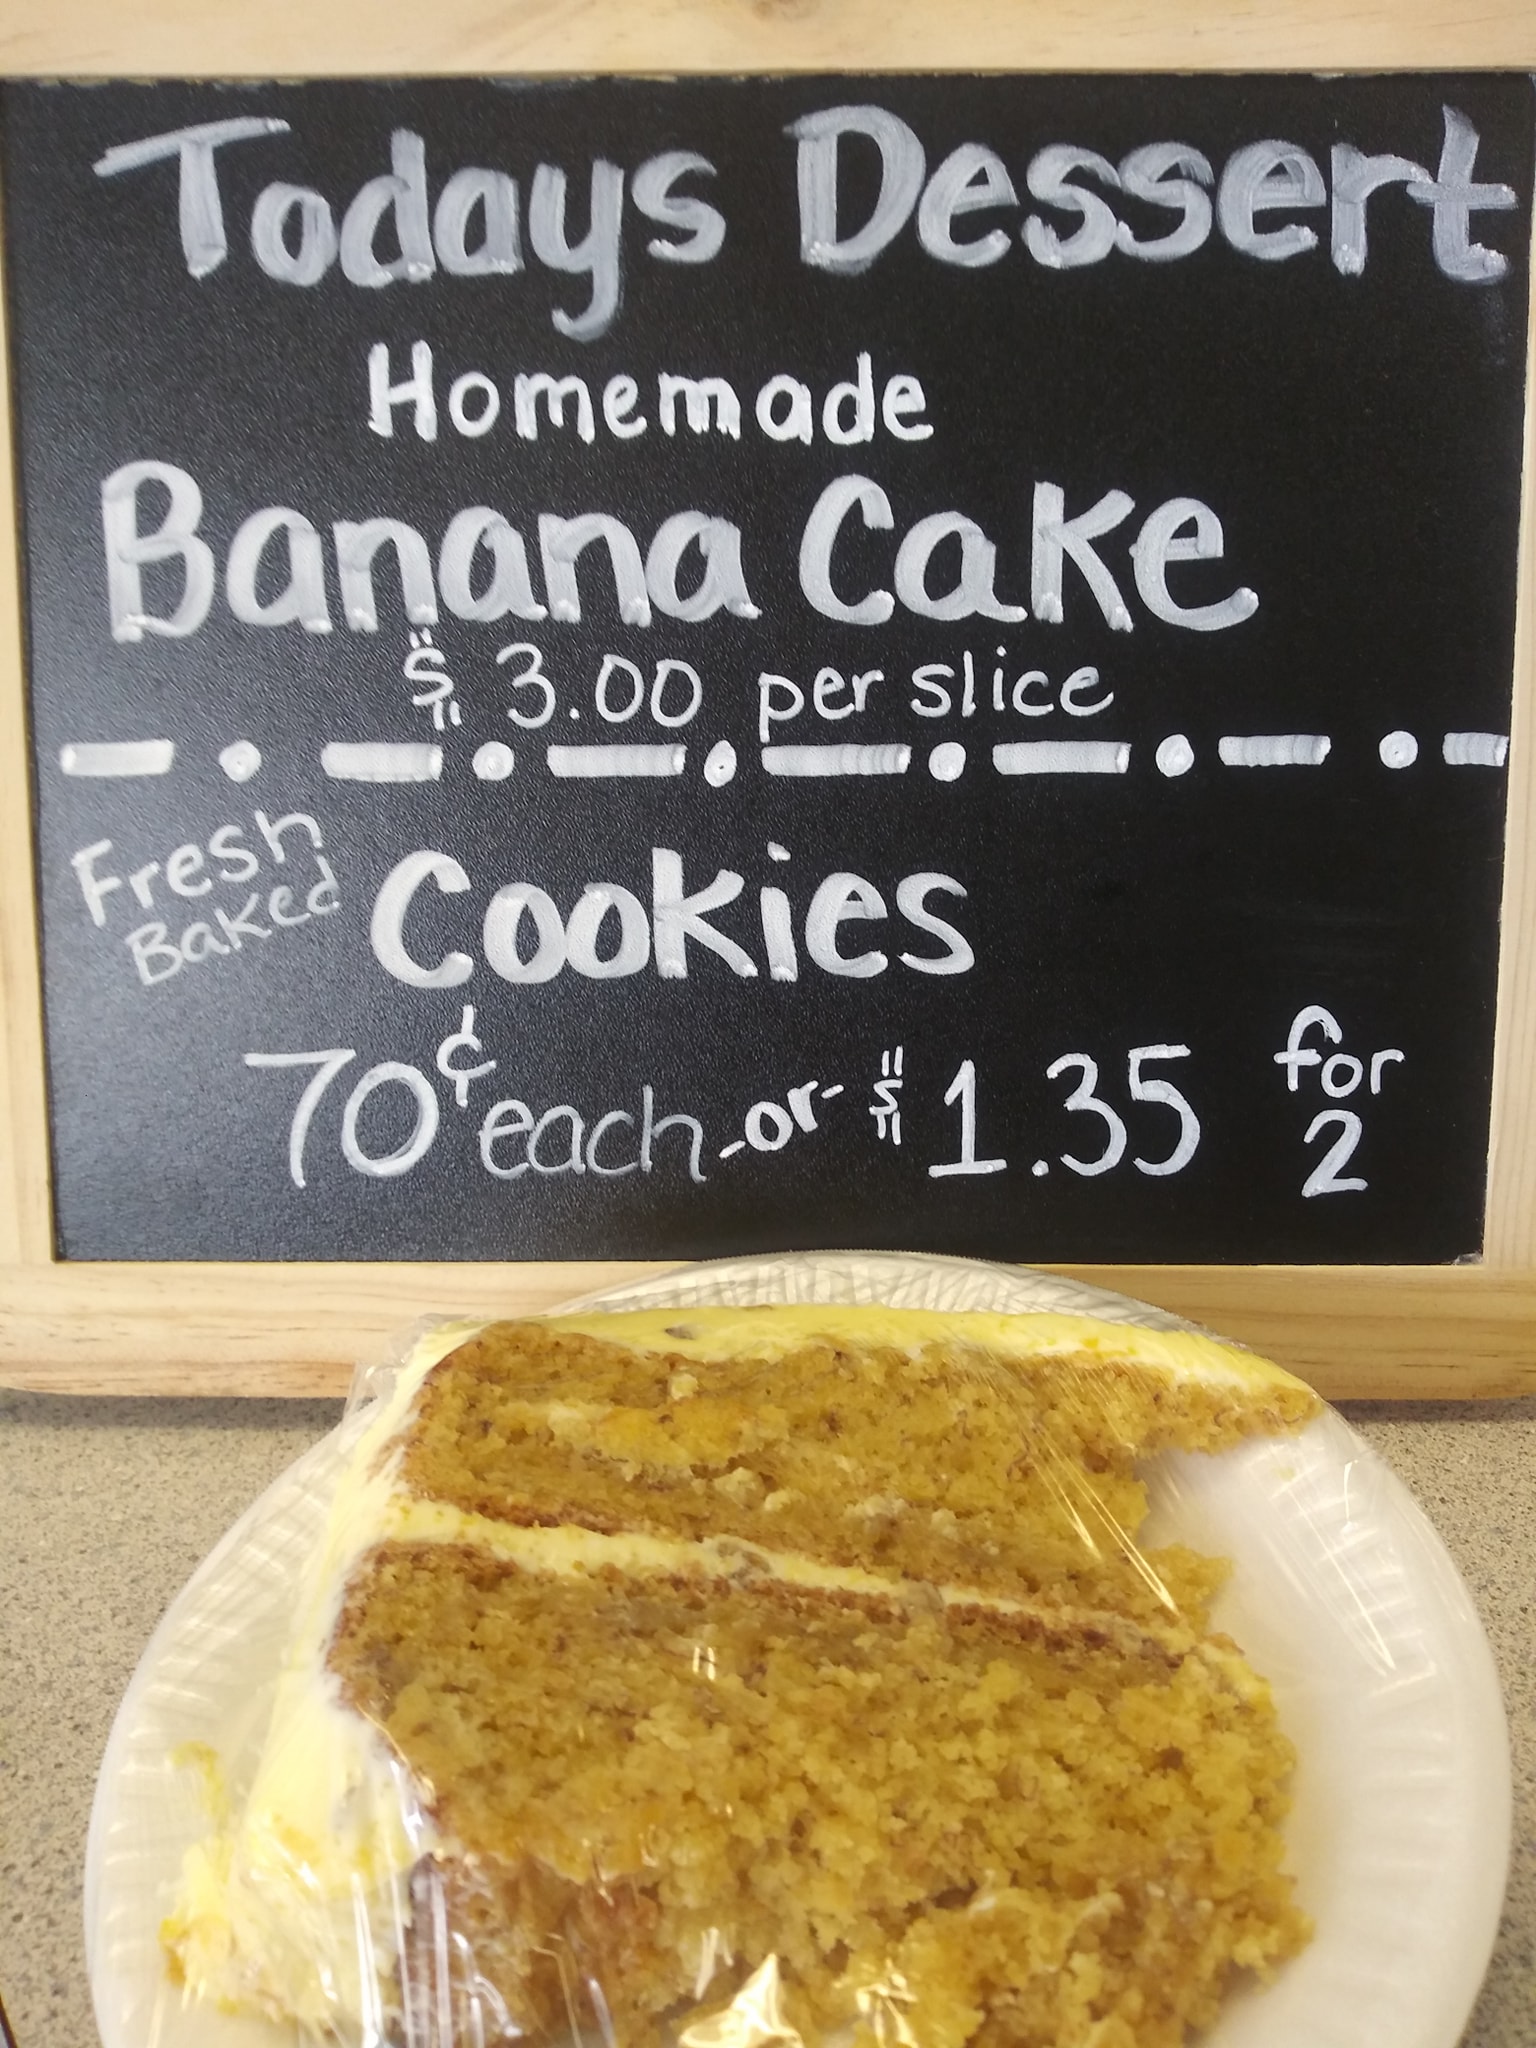 Todays Dessert
Homemade
Banana Cake
$3.00 per slice
Fresh
Baked
Cookies
70¢ each -or- $1.35 for 2